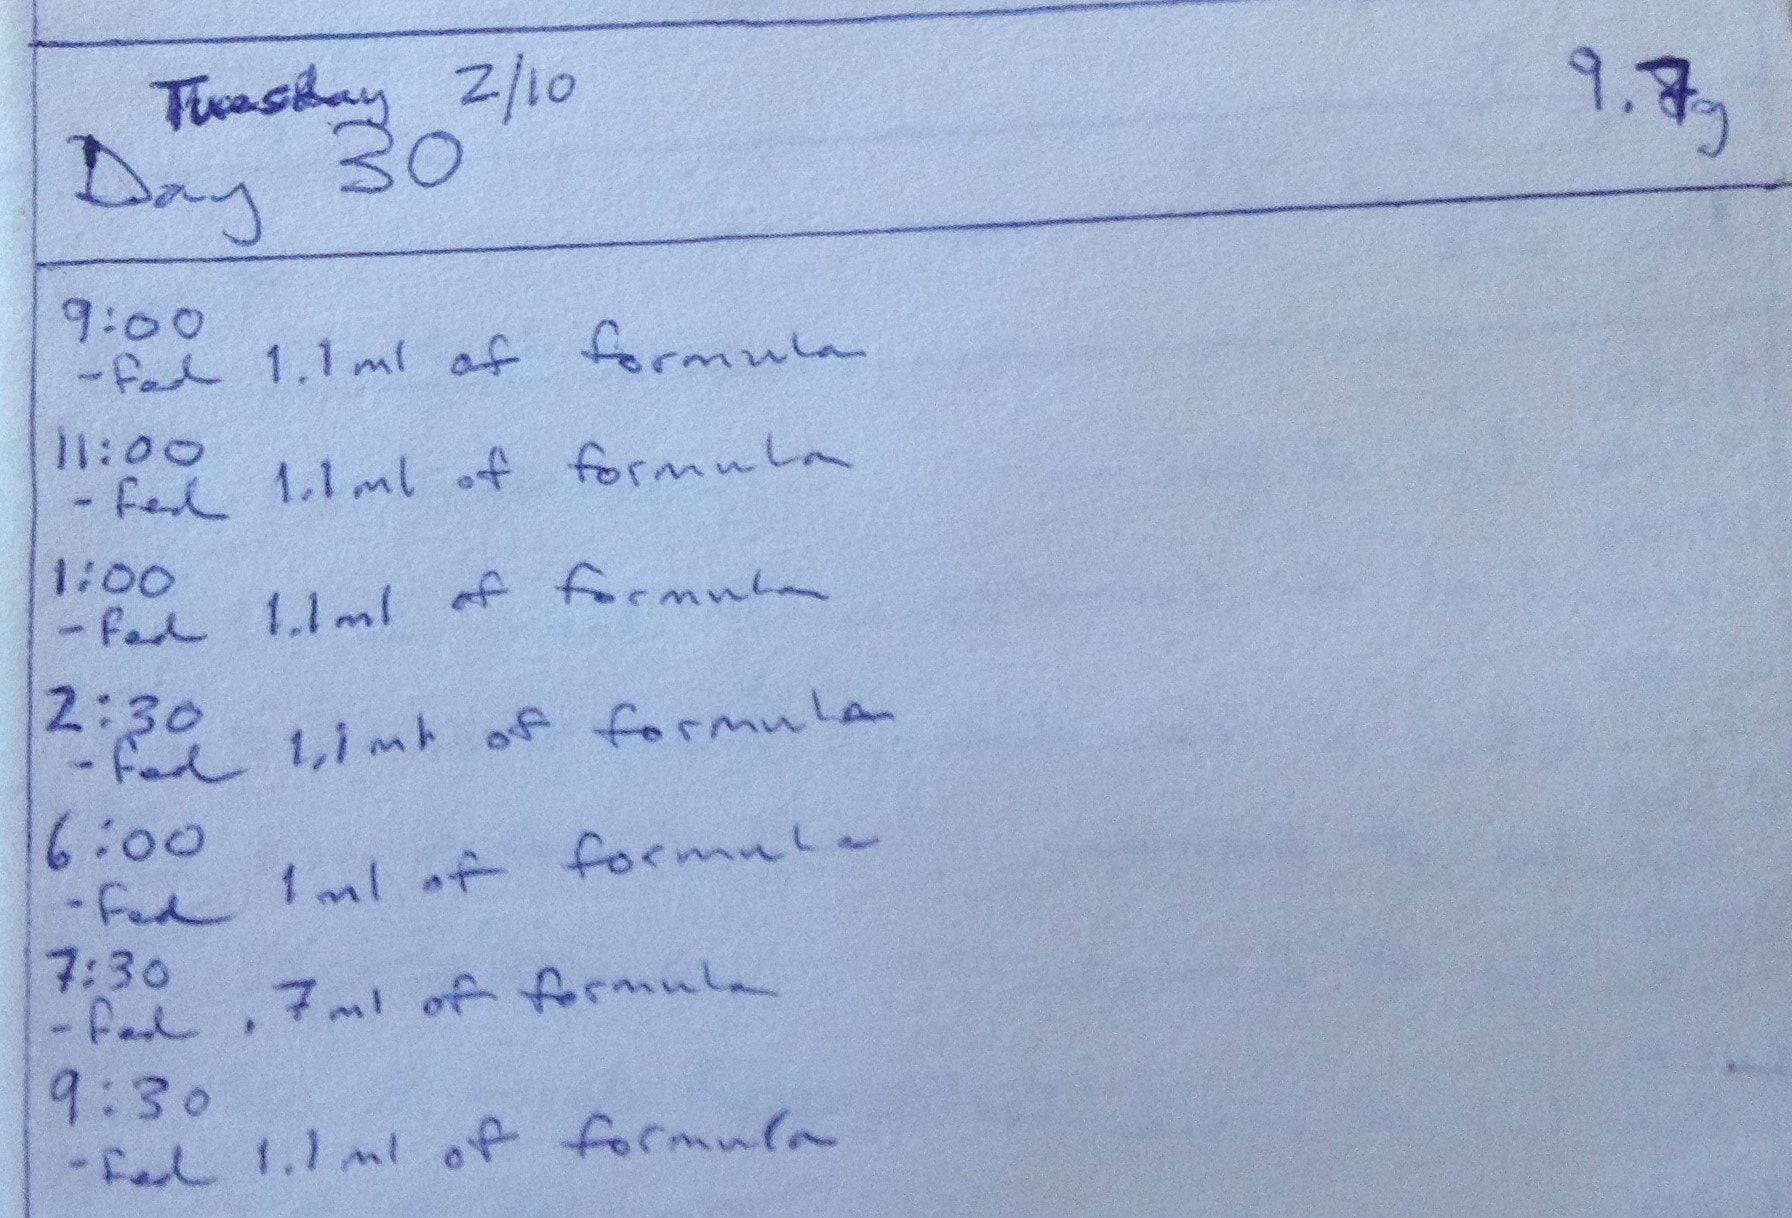 Tuesday 2/10
9.7g
Day 30
9:00
-Fed 1.1ml of formula
11:00
-Fed 1.1ml of formula
1:00
-Fed 1.1ml of formula
2:30
-Fed 1.1ml of formula
6:00
-Fed 1ml of formula
7:30
-Fed .7ml of formula
9:30
-Fed 1.1ml of formula